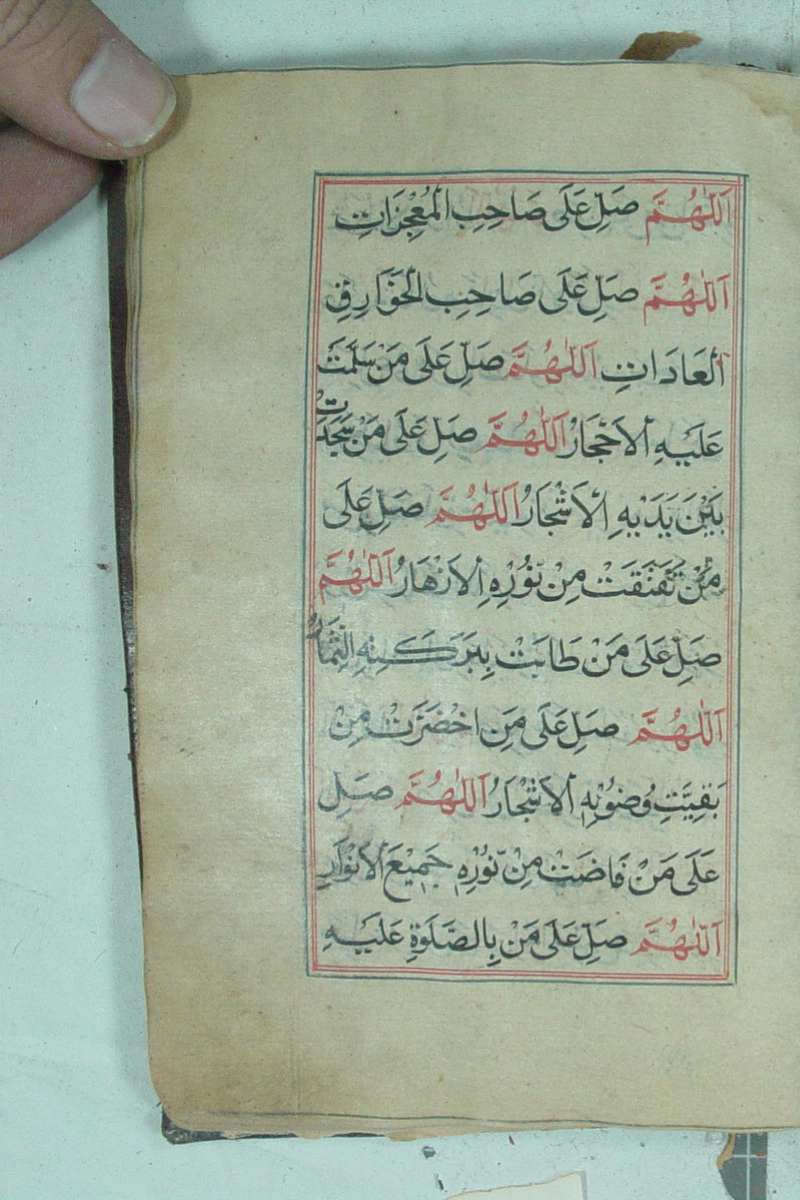 اَللّٰهُمَّ صَلِّ عَلَى صَاحِبِ الْمُعْجِزَاتِ
اَللّٰهُمَّ صَلِّ عَلَى صَاحِبِ الْخَوَارِقِ
الْعَادَاتِ اَللّٰهُمَّ صَلِّ عَلَى مَنْ سَلَّمَتْ
عَلَيْهِ الْاَحْجَارُ اَللّٰهُمَّ صَلِّ عَلَى مَنْ سَجَدَتْ
بَيْنَ يَدَيْهِ الْاَشْجَارُ اَللّٰهُمَّ صَلِّ عَلَى
مَنْ تَفَتَّقَتْ مِنْ نُّوْرِهِ الْاَزْهَارُ اَللّٰهُمَّ
صَلِّ عَلَى مَنْ طَابَتْ بِبَرَكَتِهِ الثِّمَارُ
اَللّٰهُمَّ صَلِّ عَلَى مَنِ اخْضَرَّتْ مِنْ
بَقِيَّتِ وُضُوْئِهِ الْاَشْجَارُ اَللّٰهُمَّ صَلِّ
عَلَى مَنْ فَاضَتْ مِنْ نُّوْرِهِ جَمِيْعَ الْاَنْوَارِ
اَللّٰهُمَّ صَلِّ عَلَى مَنْ بِالصَّلٰوةِ عَلَيْهِ